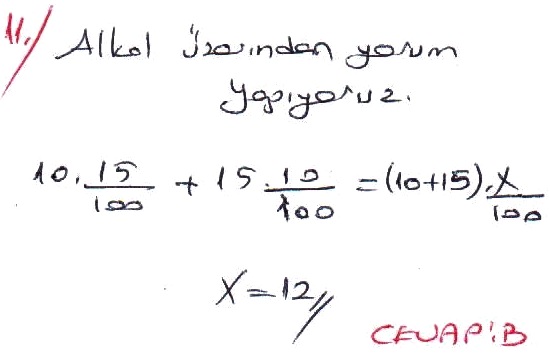 11.) Alkol üzerinden yorum
yapıyoruz.
10. 15/100 + 15. 10/100 = (10+15). x/100
X=12//
CEVAP:B